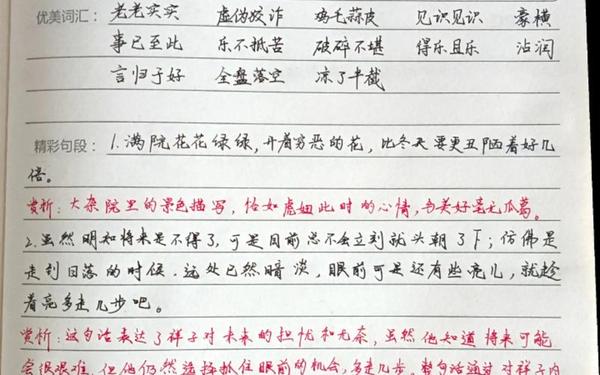 优美词汇： 老老实实 虚伪狡诈 鸡毛蒜皮 见识见识 豪横
事已至此 乐不抵苦 破碎不堪 得乐且乐 沾润
言归于好 全盘落空 凉了半截
精彩句段： 1.满院花花绿绿，开着穷恶的花，比冬天要更丑陋着好几
倍。
赏析：大杂院里的景色描写，恰如虎妞此时的心情，与美好毫无瓜葛。
2.虽然明知将来是不得了，可是目前总不会立刻就头朝了下；仿佛是
走到日落的时候，远处已然暗淡，眼前可是还有些亮儿，就趁
着亮多走几步吧。
赏析：这句话表达了祥子对未来的担忧和无奈，虽然他知道将来可能
会很艰难，但他仍然选择抓住眼前的机会，多走几步。整句话通过对祥子内